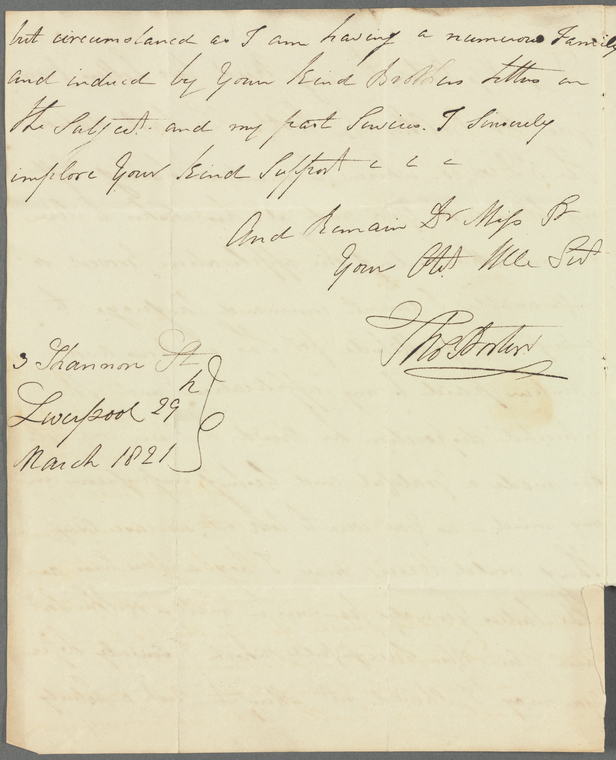 but circumstanced as I am having a numerous Family
and induced by Your Kind Brothers letters on
the Subject. and my past Services. I Sincerely
implore Your Kind Support & & &
And Remain Dr Miss Pr
Your Obt. Hble Svt
Thos
3 Shannon St
Liverpool 29th
March 1821